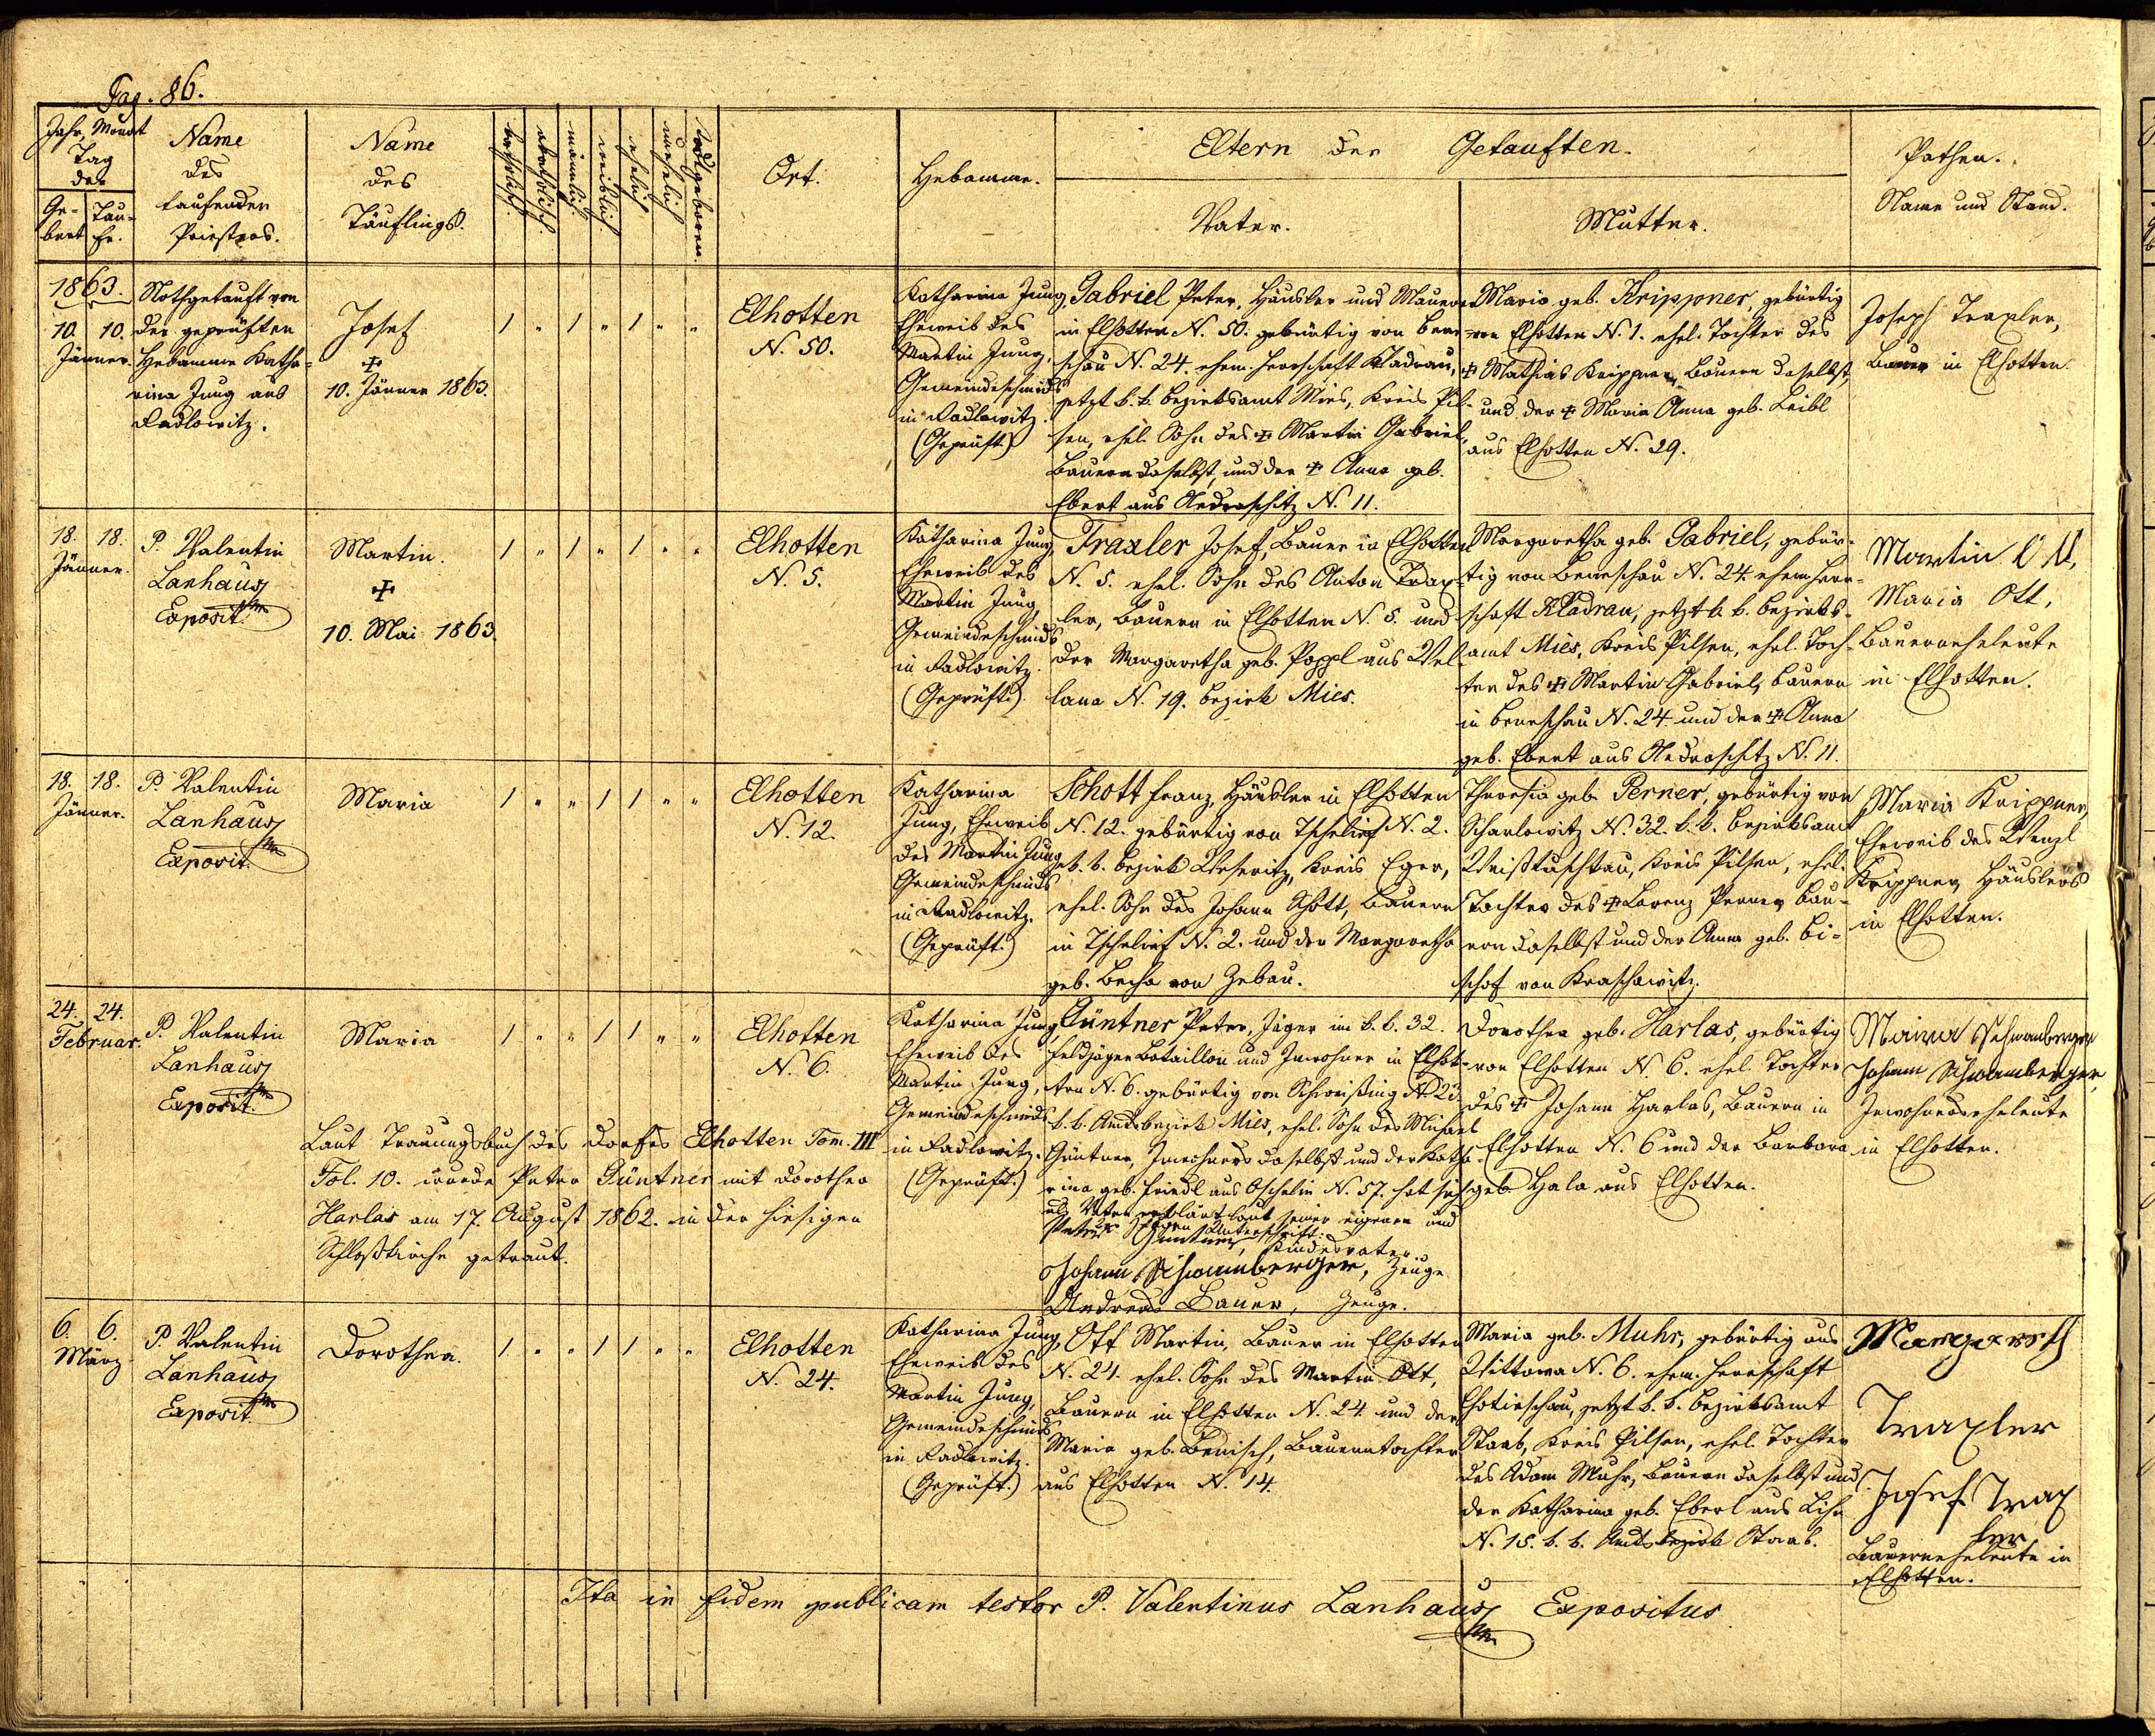 Pag. 86.
Jahr, Monat
Tag
der
Ge-
burt
Tau-
fe.
Name
des
taufenden
Priesters.
Name
des
Täuflings.
katholisch.
akatholisch.
männlich.
weiblich.
ehelich
unehelich
todtgeboren.
Ort.
Hebamme.
Eltern der Getauften.
Vater.
Mutter.
Pathen.
Name und Stand.
1863.
10. 10.
Jänner.
Nothgetauft von
der geprüften
Hebamme Katha-
rina Jung aus
Radlowitz.
Josef
✠
10. Jänner 1863.
1 " 1 " 1 " "
Elhotten
N. 50.
Katharina Jung
Eheweib des
Martin Jung,
Gemeindeschmids
in Radlowitz.
(Geprüft.)
Gabriel Peter, Häusler und Maurer
in Elhotten N. 50. gebürtig von Bene-
schau N. 24. ehem. Herrschaft Kladrau,
jetzt k. k. Bezirksamt Mies, Kreis Pil-
sen, ehel. Sohn des ✠ Martin Gabriel,
Bauern daselbst, und der ✠ Anna geb.
Ebert aus Nedraschitz N. 11.
Maria geb. Krippner, gebürtig
von Elhotten N. 1. ehel. Tochter des
✠ Mathias Krippner, Bauern daselbst,
und der ✠ Maria Anna geb. Leibl
aus Elhotten N. 29.
Joseph Traxler,
Bauer in Elhotten.
18. 18.
Jänner.
P. Valentin
Lanhaus
Exposit.
Martin.
✠
10. Mai 1863.
1 " 1 " 1 " "
Elhotten
N. 5.
Katharina Jung
Eheweib des
Martin Jung,
Gemeindeschmids
in Radlowitz.
(Geprüft.)
Traxler Josef, Bauer in Elhotten
N. 5. ehel. Sohn des Anton Trax-
ler, Bauern in Elhotten N. 5. und
der Margaretha geb. Poppl aus Wel-
lana N. 19. Bezirk Mies.
Margaretha geb. Gabriel, gebür-
tig von Beneschau N. 24. ehem. Herr-
schaft Kladrau, jetzt k. k. Bezirks-
amt Mies, Kreis Pilsen, ehel. Toch-
ter des ✠ Martin Gabriel, Bauern
in Beneschau N. 24 und der ✠ Anna
geb. Ebert aus Nedraschitz N. 11.
Martin Ott,
Maria Ott,
Bauerneheleute
in Elhotten.
18. 18.
Jänner.
P. Valentin
Lanhaus
Exposit.
Maria
1 " " 1 1 " "
Elhotten
N. 12.
Katharina
Jung, Eheweib
des Martin Jung
Gemeindeschmids
in Radlowitz.
(Geprüft.)
Schott Franz, Häusler in Elhotten
N. 12. gebürtig von Tschelief N. 2.
k. k. Bezirk Weseritz, Kreis Eger,
ehel. Sohn des Johann Schott, Bauern
in Tschelief N. 2. und der Margaretha
geb. Becha von Zebau.
Theresia geb. Perner, gebürtig von
Scharlowitz N. 32. k. k. Bezirksamt
Weißtuschkau, Kreis Pilsen, ehel.
Tochter des ✠ Lorenz Perner, Bau-
ern daselbst und der Anna geb. Bi-
schof von Kraschowitz.
Maria Krippner,
Eheweib des Wenzl
Krippner, Häuslers
in Elhotten.
24. 24.
Februar.
P. Valentin
Lanhaus
Exposit.
Maria
1 " " 1 1 " "
Elhotten
N. 6.
Laut Trauungsbuch des Dorfes Elhotten Tom. III
Fol. 10. wurde Peter Güntner mit Dorothea
Harlas am 17. August 1862. in der hiesigen
Schloßkirche getraut.
Katharina Jung,
Eheweib des
Martin Jung,
Gemeindeschmids
in Radlowitz.
(Geprüft.)
Güntner Peter, Jäger im k. k. 32.
Feldjäger Bataillon und Inwohner in Elhot-
ten N. 6. gebürtig von Schweißing N. 23.
k. k. Amtsbezirk Mies, ehel. Sohn des Michael
Güntner, Inwohners daselbst und der Katha-
rina geb. Friedl aus Oschelin N. 57. hat sich
als Vater erklärt laut seiner eigenen und
Zeugen Unterschrift:
Peter Güntner, Kindesvater.
Johann Schwamberger, Zeuge
Andreas Bauer, Zeuge.
Dorothea geb. Harlas, gebürtig
von Elhotten N. 6. ehel. Tochter
des ✠ Johann Harlas, Bauern in
Elhotten N. 6 und der Barbara
geb. Hala aus Elhotten.
Maria Schwamberger
Johann Schwamberger,
Inwohnerseheleute
in Elhotten.
6. 6.
März
P. Valentin
Lanhaus
Exposit.
Dorothea.
1 " " 1 1 " "
Elhotten
N. 24.
Katharina Jung,
Eheweib des
Martin Jung,
Gemeindeschmids
in Radlowitz.
(Geprüft.)
Ott Martin, Bauer in Elhotten
N. 24. ehel. Sohn des Martin Ott,
Bauern in Elhotten N. 24. und der
Maria geb. Benisch, Bauerntochter
aus Elhotten N. 14.
Maria geb. Muhr, gebürtig aus
Wittowa N. 6. ehem. Herrschaft
Chotieschau, jetzt k. k. Bezirksamt
Staab, Kreis Pilsen, ehel. Tochter
des Adam Muhr, Bauern daselbst und
der Katharina geb. Eberl aus Lihn
N. 15. k. k. Amtsbezirk Staab.
Margareth
Traxler
Josef Trax
ler
Bauerneheleute in
Elhotten.
Ita in fidem publicam testor P. Valentinus Lanhaus Expositus